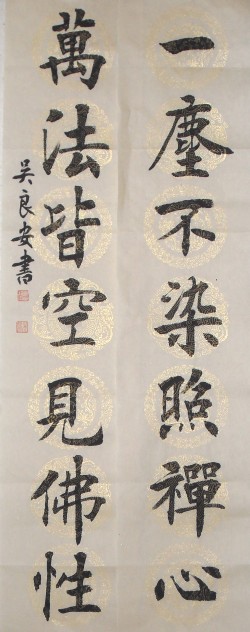 一塵不染照禪心
萬法皆空見佛性
吳良安書